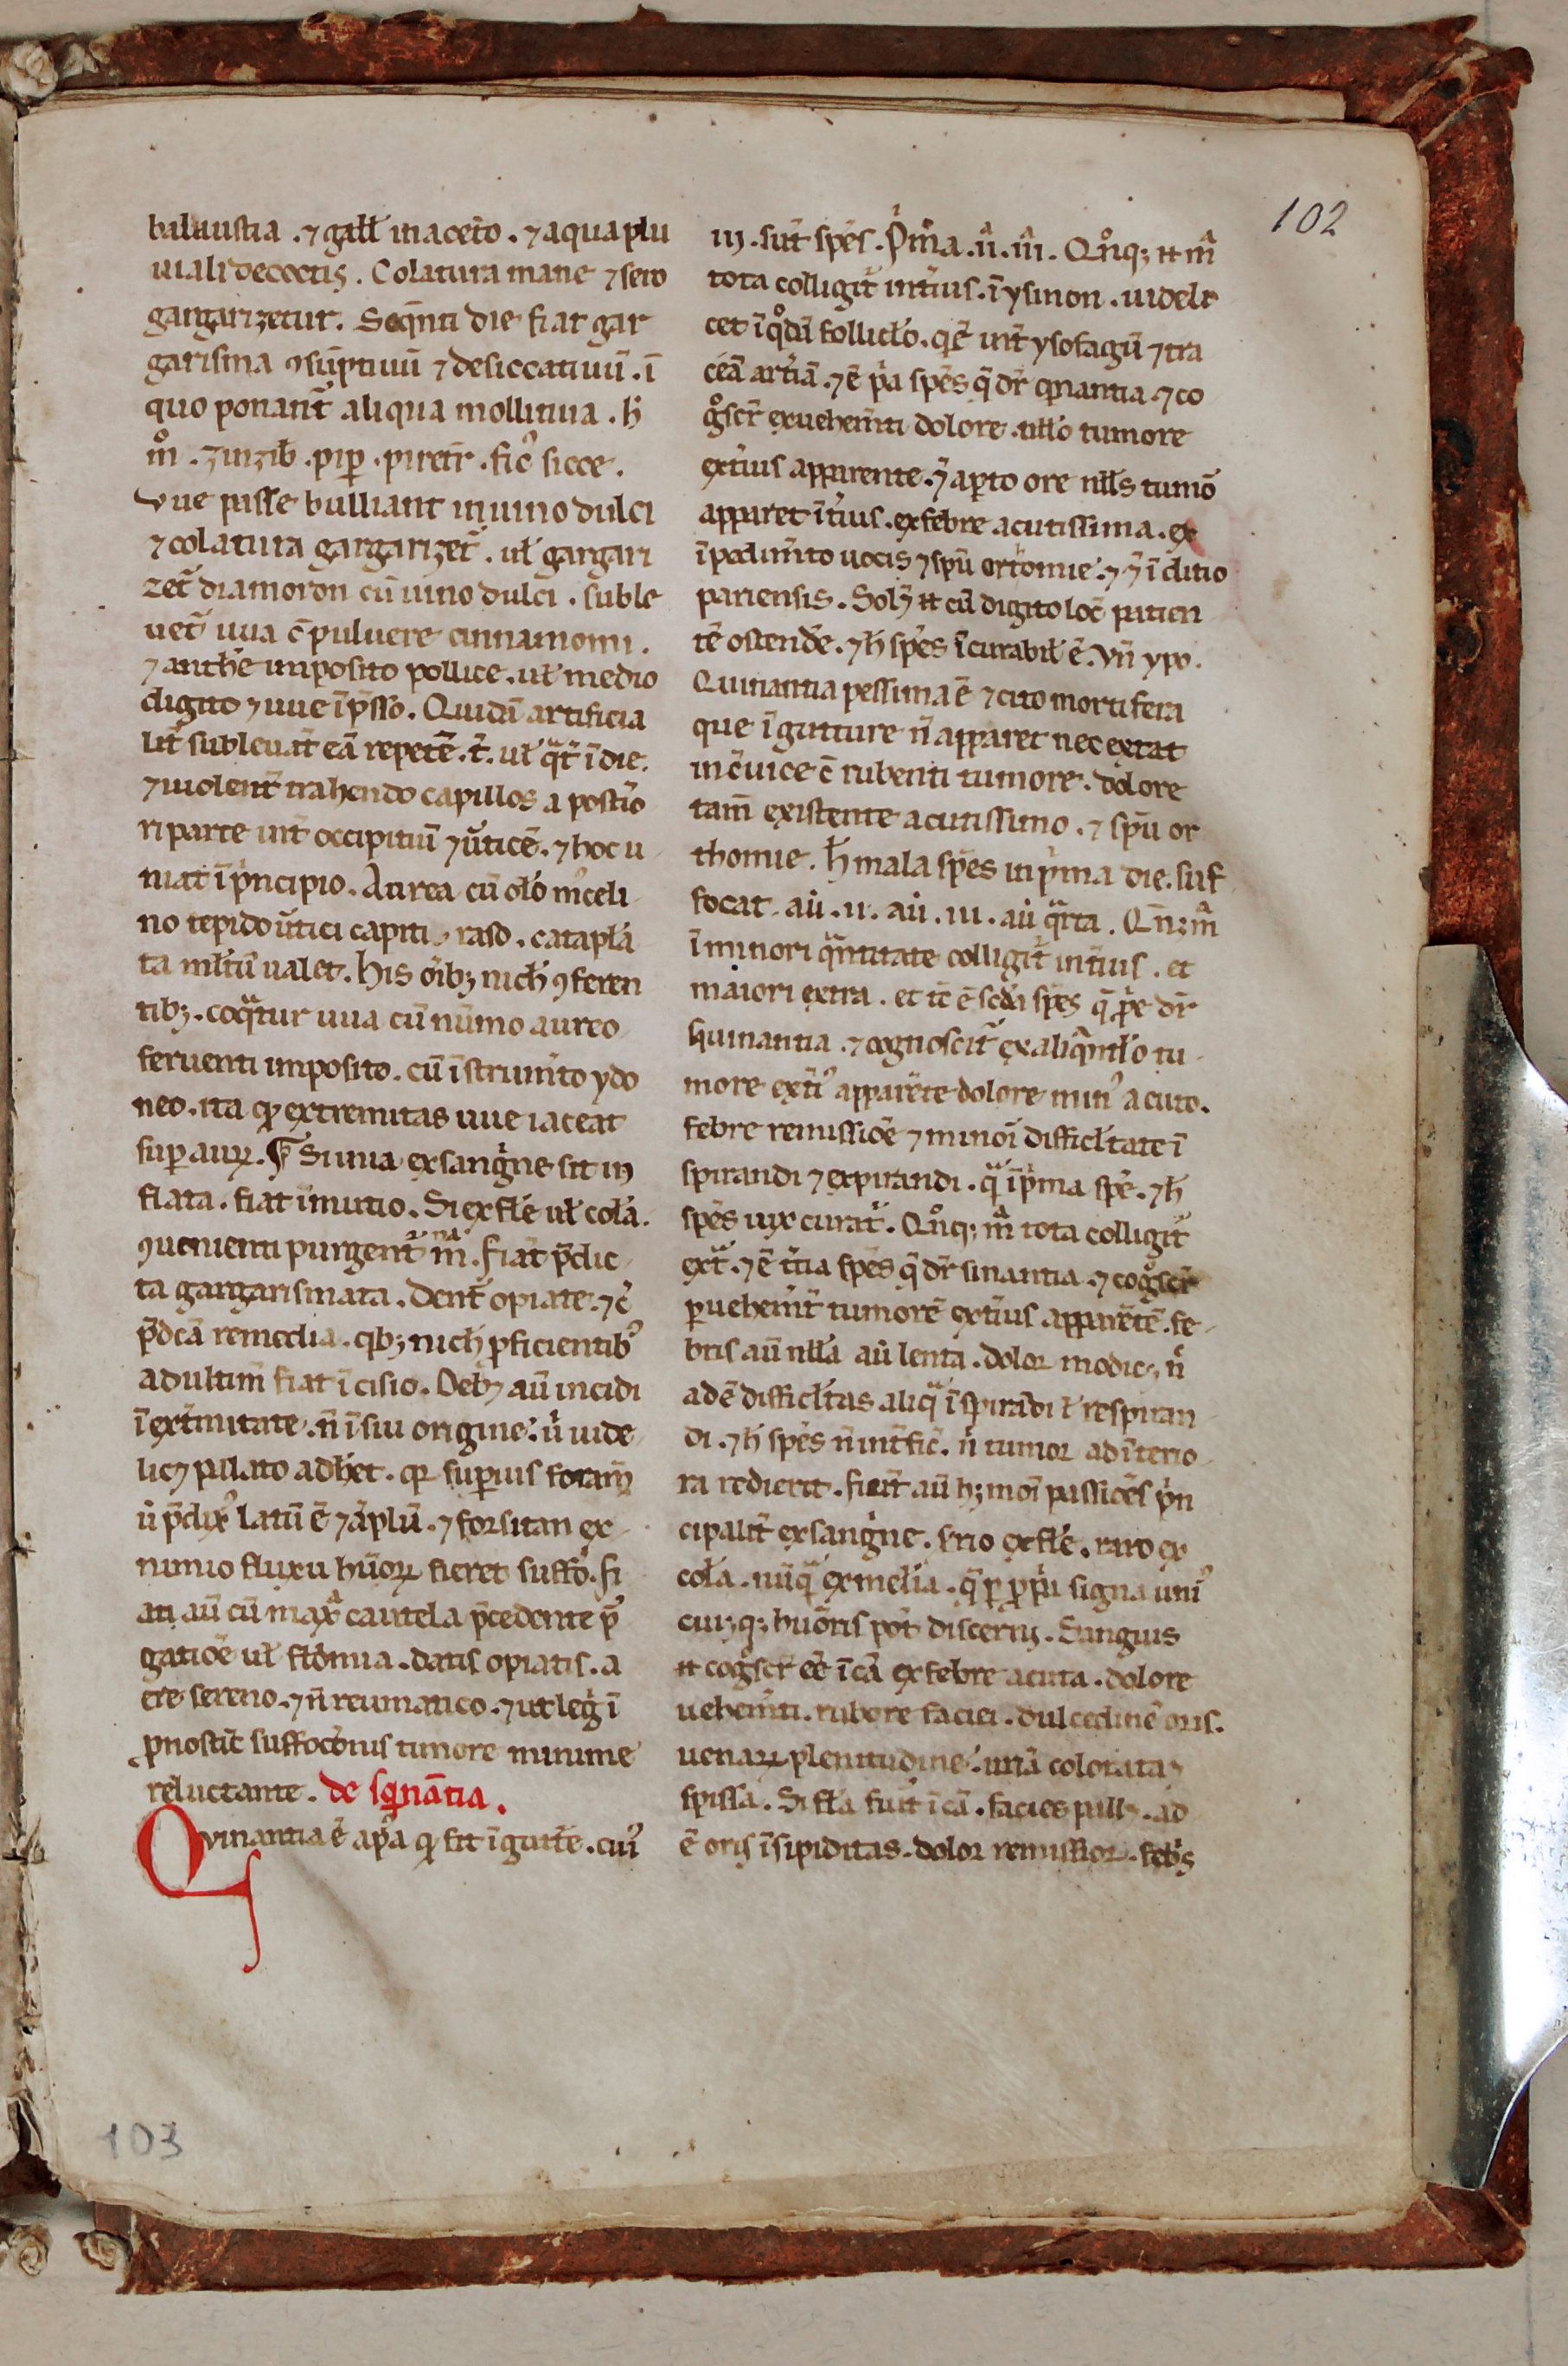 102
balaustia . ⁊ gałł in aceto . ⁊ aqua plu
uiali decoctis . Colatura mane ⁊ sero
gargarizetur . Seqn̄ti die fiat gar
garisma ꝯsūptiuū ⁊ desiccatiuū . ī
quo ponant᷑ aliqua mollitiua . h̄
m̊ . zinzib̄ . pip̄ . piretr̄ . fic᷒ sicce .
vue passe bulliant in uino dulci
⁊ colatura gargarizet᷑ . uł gargari
zet᷑ diamoron cū uino dulci . suble
uet᷑ uua c̄ puluere cinnamomi .
⁊ anthe imposito pollice . uł medio
digito ⁊ uue īp̄sso . Quidā artificia
lit᷑ subleuāt eā repetē . t᷑ . uł qͣt᷑ ī die .
⁊ uiolent᷑ trahendo capillos a postio
ri parte int᷑ occipitiū ⁊ u᷑ticē . ⁊ hoc u
niat ī pͥncipio . Aurea cū oło m᷒celi
no tepido u᷑tici capiti raso . catapla
ta młtū ualet . His oīb; nich̄ ꝯferen
tib; . coqͣtur uua cū nūmo aureo
feruenti imposito . cū īstrum̄to ydo
neo . ita ꝙ extremitas uue iaceat
suꝑ auꝝ . ¶ Si uua ex sangͥne sit in
flata . fiat īmutio . Si ex fłe uł cola .
ꝯuenienti purgent᷑ mͣ . fiāt p̄dic
ta gargarismata . Dent᷑ opiate . ⁊ c᷑
p̄dc̄a remedia . qͥb; nich̄ ꝓficientib᷒
ad ultim̄ fiat īcisio . Deb; aū incidi
ī ext᷑mitate . n̄ ī sui origine . ū uide
lic; pallato adhet . qꝛ suꝑius foram̄
ū p̄dix᷒ latū ē ⁊ āplū . ⁊ forsitan ex
nimio fluxu hūoꝝ fieret suffō . fi
at aū cū maxͣ cautela p̄cedente p᷑
gatiōe uł fłbomia . datis opiatis . a
ere sereno . ⁊ n̄ reumatico . ⁊ ut leg̊ ī
ꝓnostic̄ suffocōnis timore minime
reluctante . de sqͥnātia .
Qvinantia ē ap̄a ꝙ fit ī guttͤe . cuī᷒
iij . sūt spēs . Pͥma . ii͛ . iii͛ . Qn̊q; n̄ mͣ
tota colligit᷑ int᷑ius . ī ysmon . uidelꝫ
cet ī qͦdā folliclo . qͥ ē int᷑ ysofagū ⁊ tra
ceā art᷑iā . ⁊ ē pͥa spēs q̄ dr̄ qͥnantia . ⁊ co
g̊scr̄ ex uehem̄ti dolore . nłło tumore
ext᷑ius apparente . ⁊ aꝑto ore nłłs tumō
apparet īt᷑ius . ex febre acutissima . ex
īpedim̄to uocis ⁊ spū ortomie . ⁊ ⁊ ī clitio
pariensis . Sol; n̄ cū digito loc̄ patien
tē ostende . ⁊ h̄ spēs īcurabił ē . vn̄ ypo .
Quinantia pessima ē ⁊ cito mortifera
que ī gutture n̄ apparet nec extat
in c᷑uice c̄ rubenti tumore . dolore
tam̄ existente acutissimo . ⁊ spū or
thomie . h̄ mala spēs in pͥma die . suf
focat . aū . ii . aū . iii . aū qͣrta . Qn̄; mͣ
ī minori qͣntitate colligit᷑ int᷑ius . et
maiori extra . et tc̄ ē scd̄a spēs q̄ ꝓpe dr̄
squinantia . ⁊ cognoscit᷑ ex aliqͣntło tu
more ext᷑i᷒ apparēte dolore min᷒ acuto .
febre remissiōe ⁊ minoi difficłtate ī
spirandi ⁊ expirandi . qͣ ī pͥma spē . ⁊ h̄
spēs uix curat᷑ . Qn̊q; mͣ tota colligit᷑
extͣ . ⁊ ē t᷑tia spēs q̄ dr̄ sinantia . ⁊ cog̊scr̄
ꝑ uehem̄t tumorē ext᷑ius apparētē . fe
bris aū nłła aū lenta . dolor modic᷒ . n̄
ad ē difficłtas aliqͣ ī spirādi ł respiran
di . ⁊ h̄ spēs n̄ int᷑fic̄ . n̄ tumor ad īt᷑io
ra redierit . fiūt aū h; moī passiōes pͥn
cipalit᷑ ex sangͥne . s̄rio ex fłe . raro ex
cola . nūqͣ ex mełia . q̄ ꝑ ꝓpͥa signa uni᷒
cui;q; huōris pōt discerni . Sanguis
n̄ cog̊scr̄ eē ī cā ex febre acuta . dolore
uehem̄ti . rubore faciei . dulcedine oris .
uenaꝝ plenitudine . urīa colorata ⁊
spissa . Si fła fuit ī cā . facies pall; . ad
ē oris īsipiditas . dolor remissior . feb̄s
103